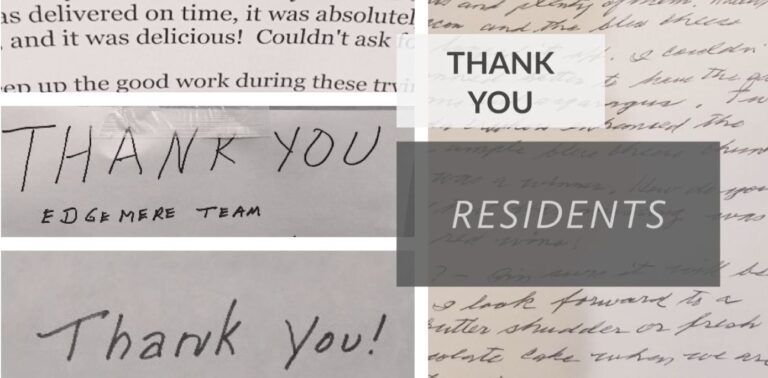 as delivered on time, it was absolutel
, and it was delicious! Couldn't ask fo
ep up the good work during these tryi
THANK YOU
EDGEMERE TEAM
Thank You!
THANK
YOU
RESIDENTS
and plenty of
and the bleu cheese
I couldn'
to have the
asparagus.
enhanced the
simple bleu cheese
was a winner. How do you
was
red wine!
I'm sure it will be
I look forward to a
utter shudder or fresh
olate cake when we are